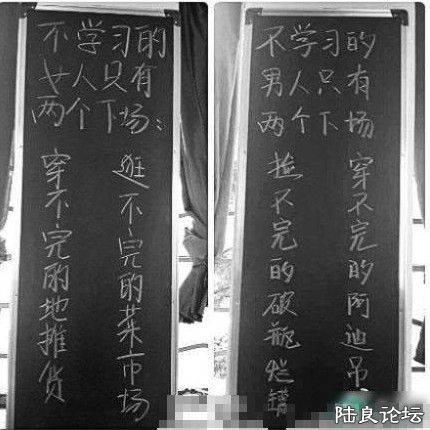 不学习的
女人只有
两个下场:
逛不完的菜市场
穿不完的地摊货
不学习的
男人只有
两个下场
穿不完的阿迪吊
捡不完的破瓶烂罐
陆良论坛